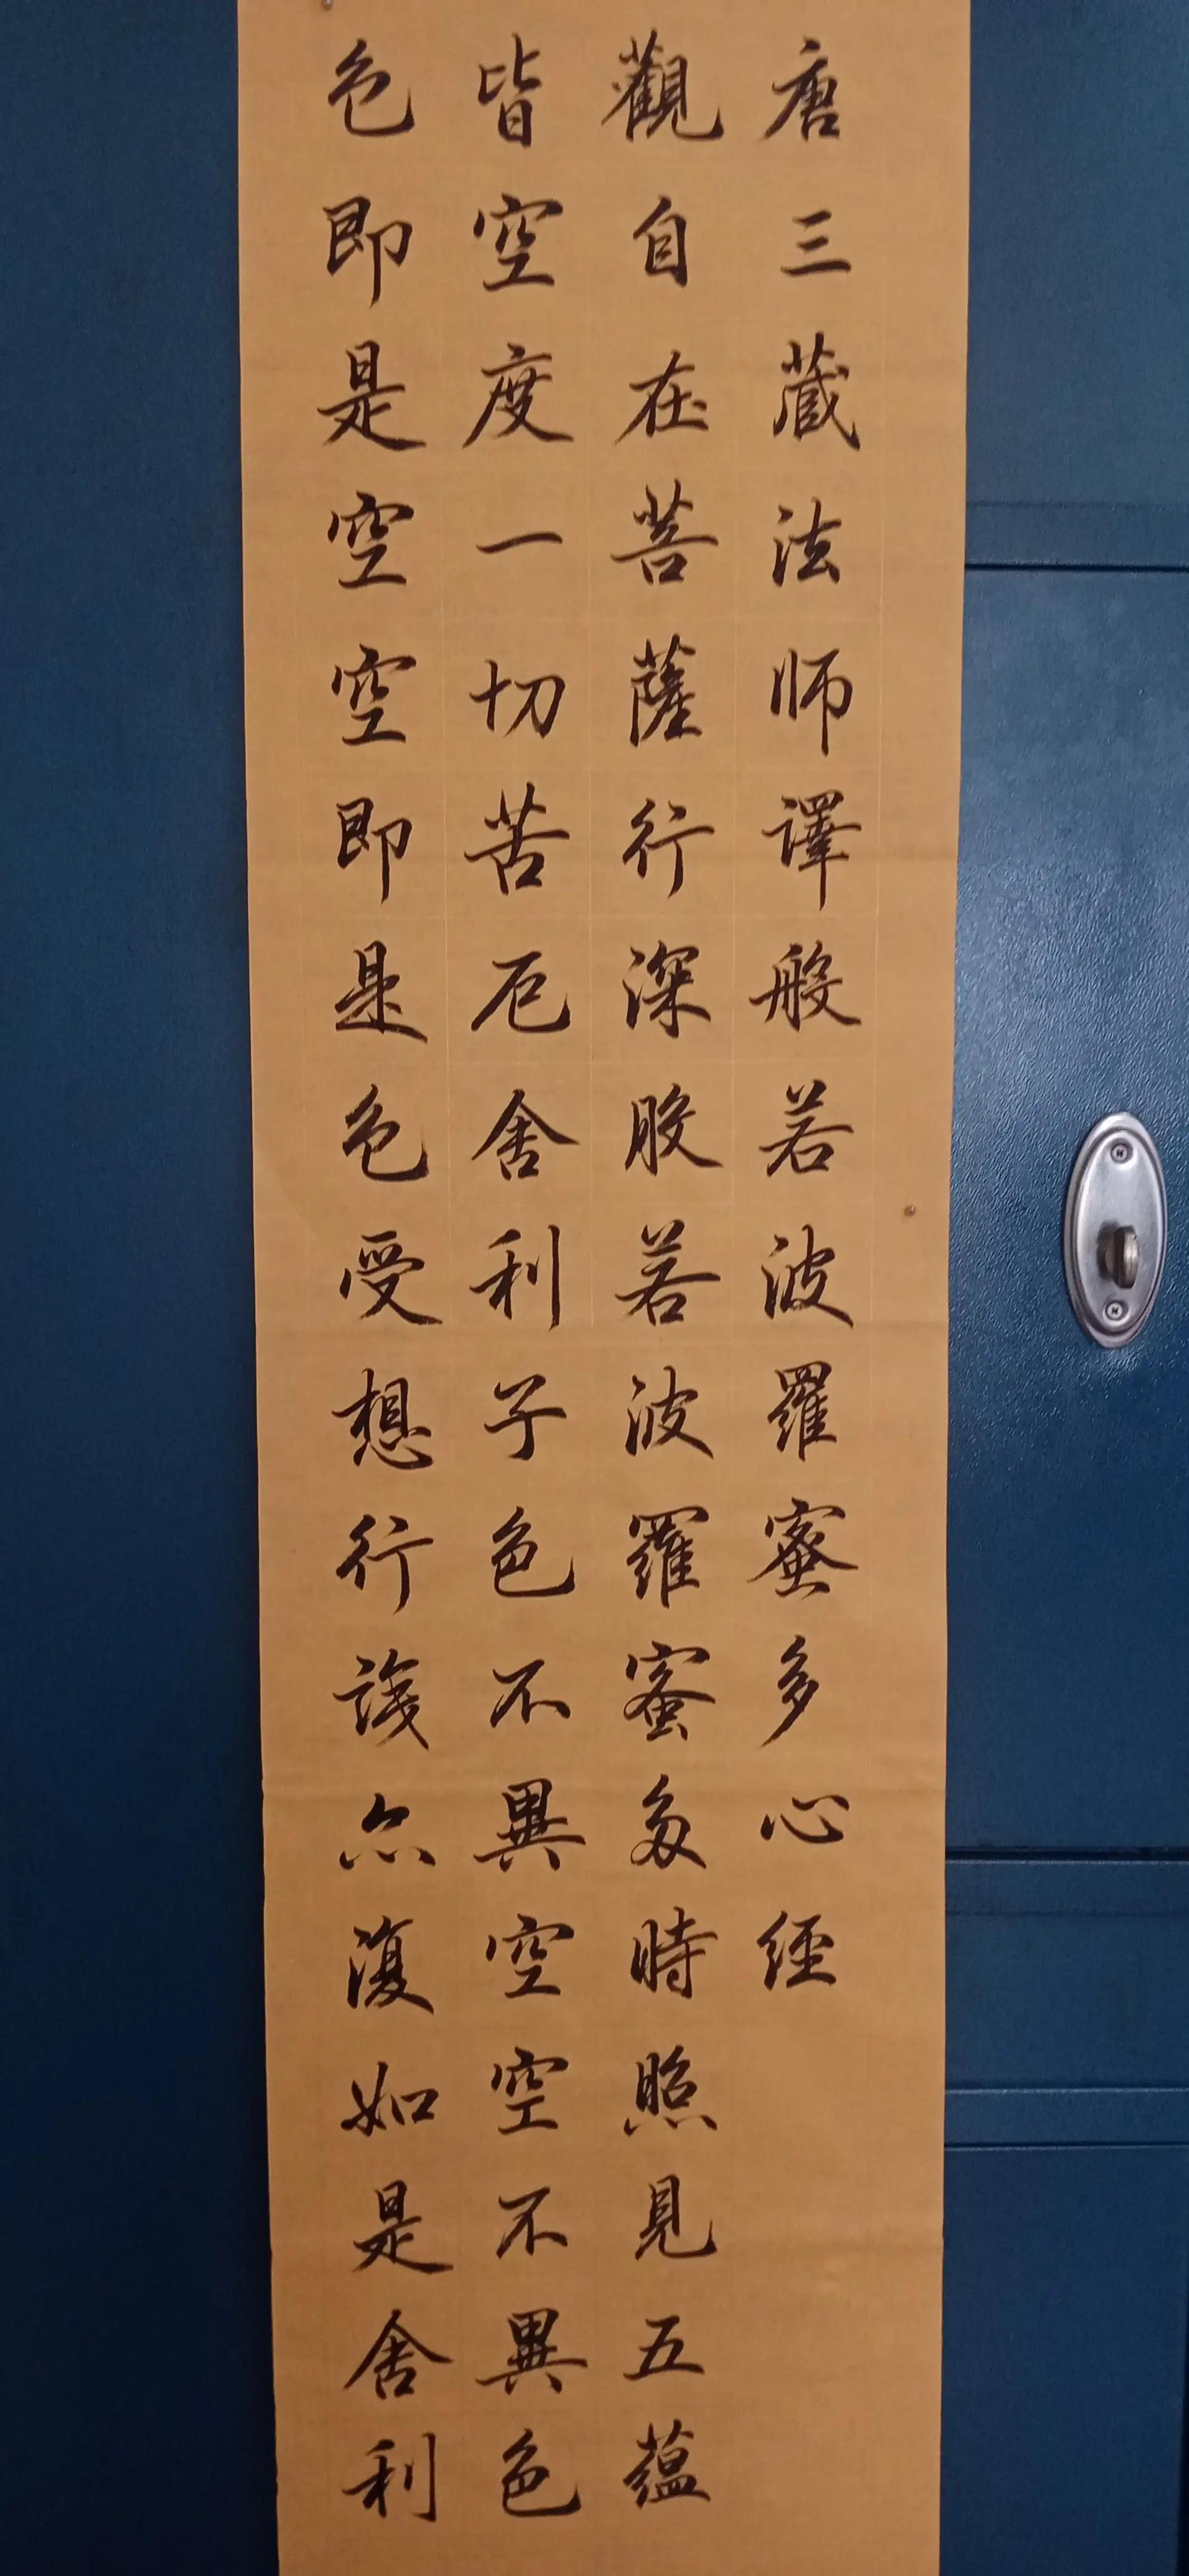 唐三藏法师譯般若波羅蜜多心經
觀自在菩薩行深般若波羅蜜多時照見五蕴
皆空度一切苦厄舍利子色不異空空不異色
色即是空空即是色受想行識亦復如是舍利